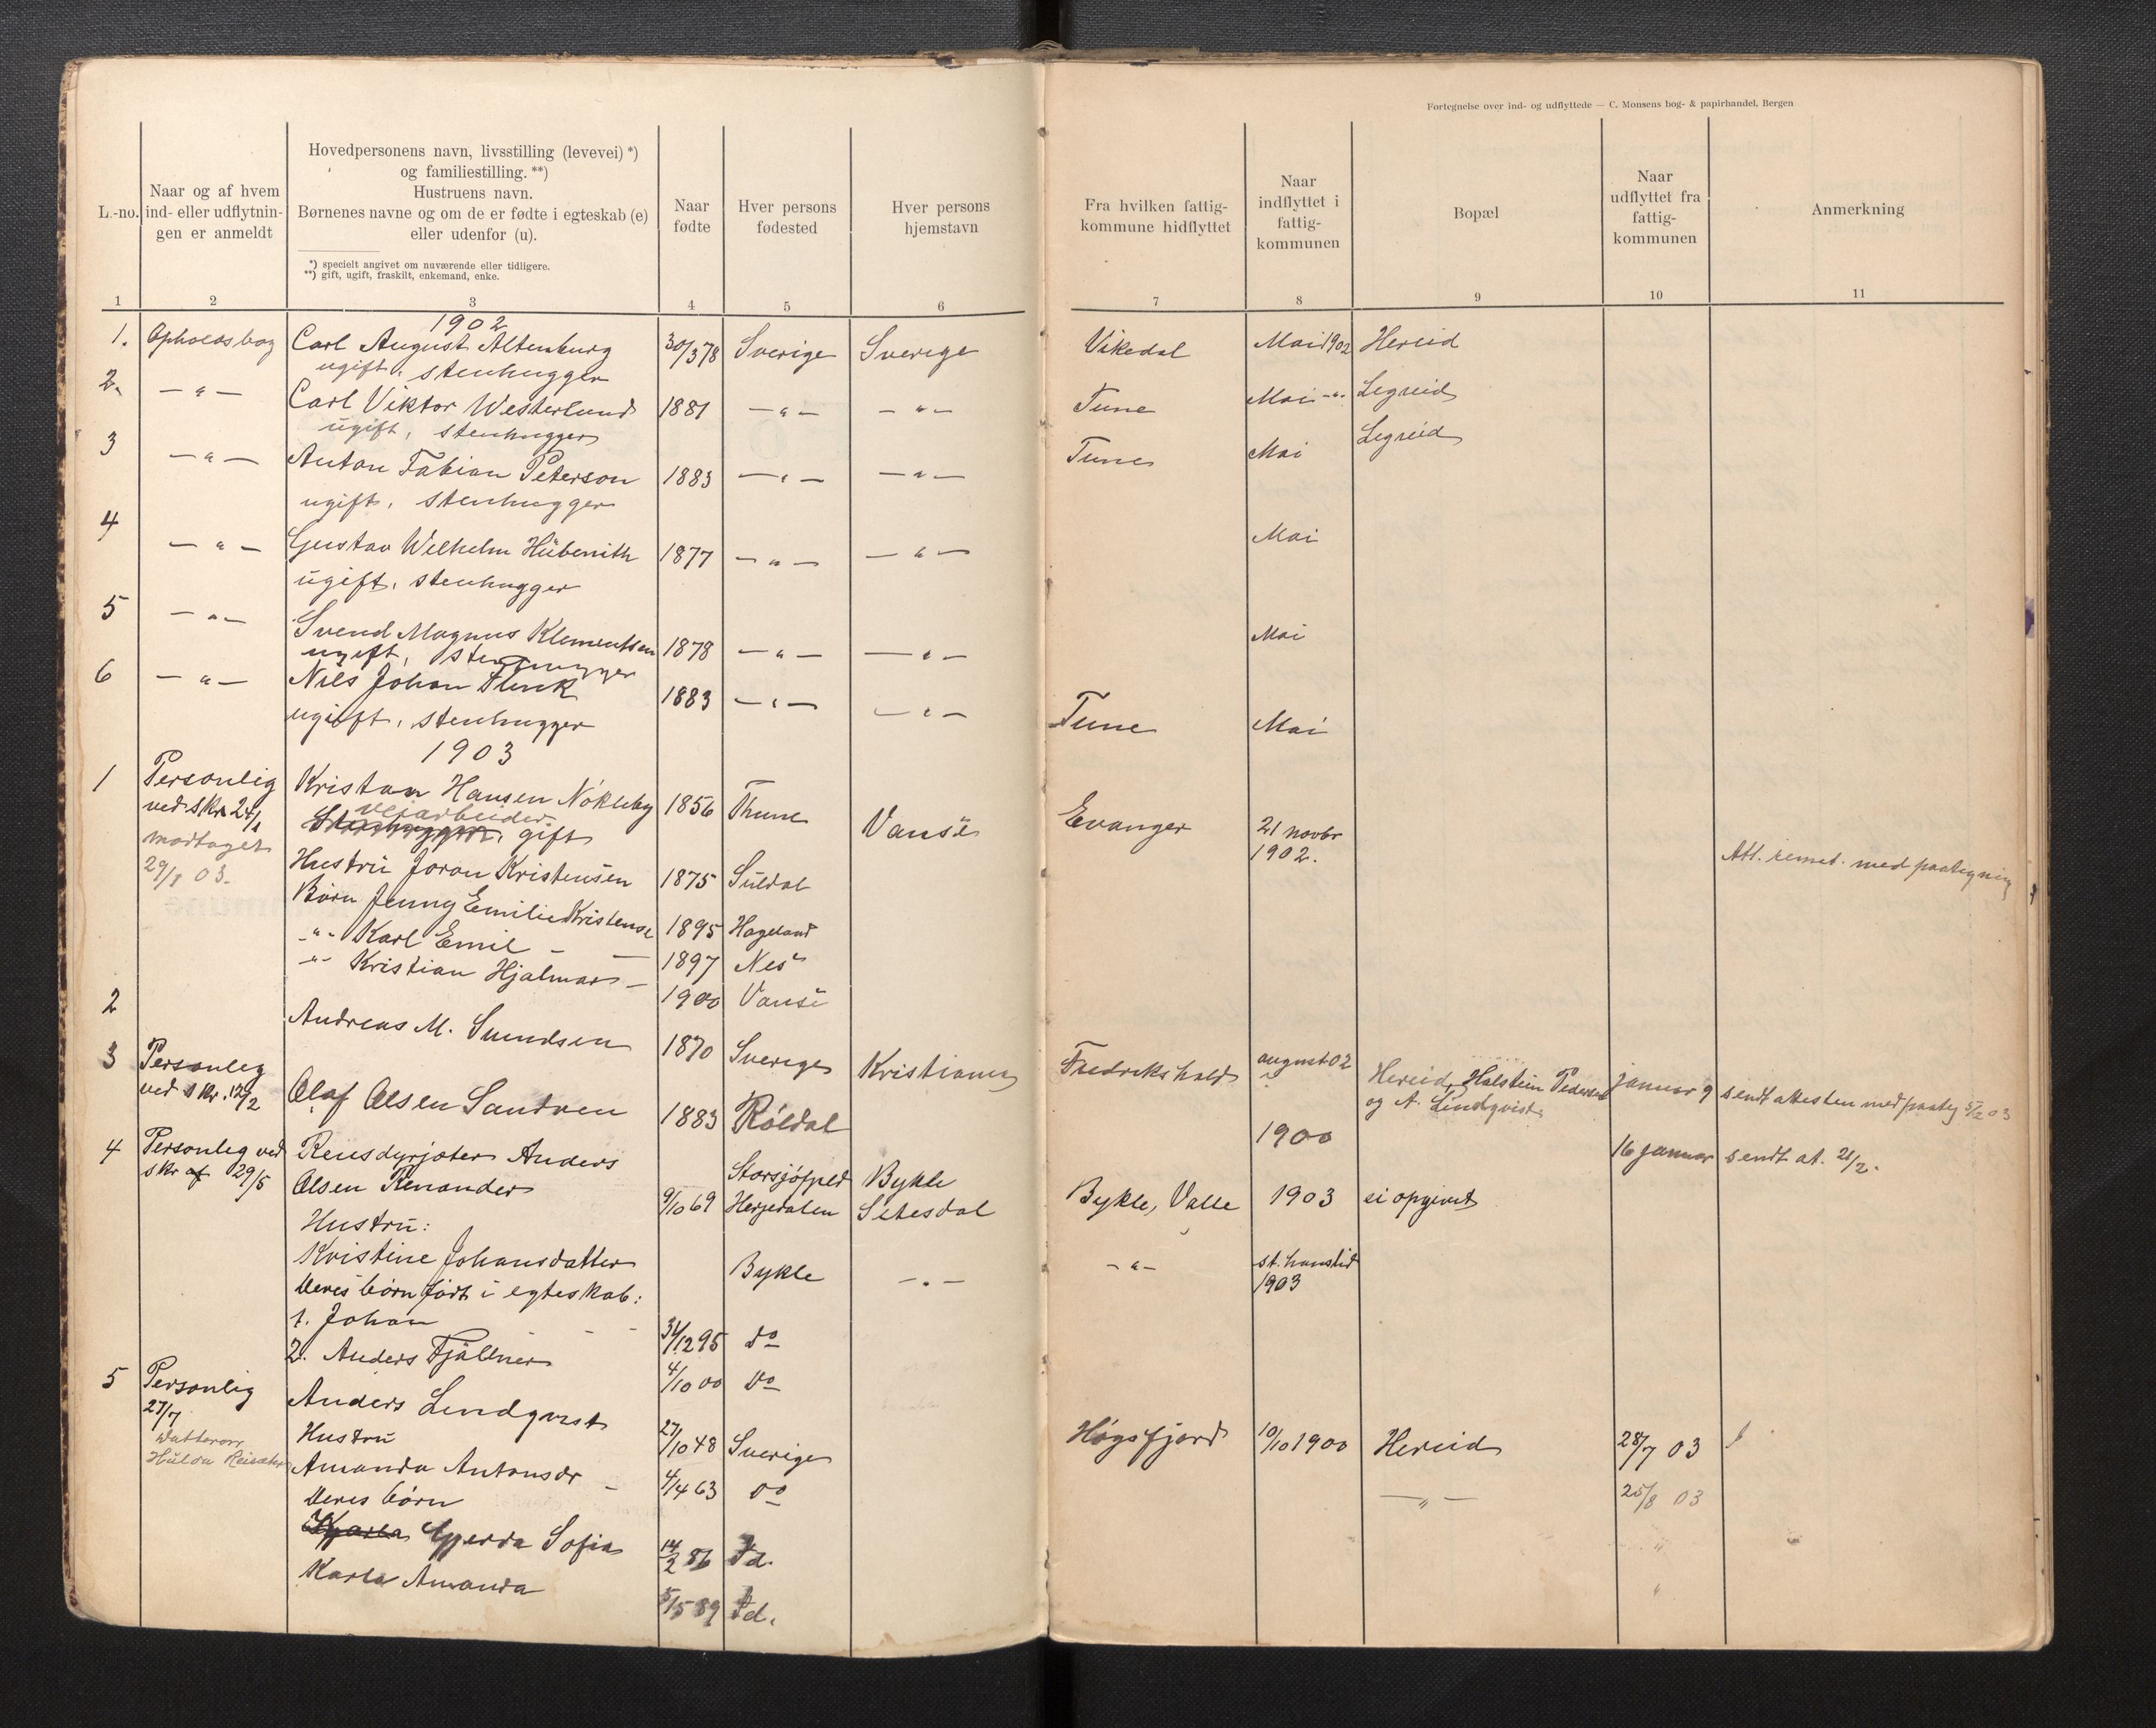 Fortegnelse over ind- og udflyttede — C. Monsens bog- & papirhandel, Bergen
L.-no.
Naar og af hvem
ind- eller udflytnin-
gen er anmeldt
Hovedpersonens navn, livsstilling (levevei) *)
og familiestilling. **)
Hustruens navn.
Børnenes navne og om de er fødte i egteskab (e)
eller udenfor (u).
*) specielt angivet om nuværende eller tidligere.
**) gift, ugift, fraskilt, enkemand, enke.
Naar
fødte
Hver persons
fødested
Hver persons
hjemstavn
Fra hvilken fattig-
kommune hidflyttet
Naar
indflyttet i
fattig-
kommunen
Bopæl
Naar
udflyttet fra
fattig-
kommunen
Anmerkning
1 2 3 4 5 6 7 8 9 10 11
1902
1. Opholdsbog Carl August Altenburg 30/3 78 Sverige Sverige Vikedal Mai 1902 Hereid
ugift, stenhugger
2. — " — Carl Viktor Westerlund 1881 — " — — " — Tune Mai -"- Legreid
ugift, stenhugger
3 — " — Anton Fabian Peterson 1883 — " — — " — Tune Mai Legreid
ugift, stenhugger
4 — " — Gustav Wilhelm Hübenith 1877 — " — — " — Mai
ugift, stenhugger
5 — " — Svend Magnus Klementsen 1878 — " — — " — Mai
ugift, stenhugger
6 — " — Nils Johan Flink 1883 — " — — " — Tune Mai
ugift, stenhugger
1903
1 Personlig Kristan Hansen Nökleby 1856 Thune Vansö Evanger 21 novbr
ved skr 24/1 veiarbeider 1902.
Stenhugger, gift
modtaget Hustru Joran Kristensen 1875 Suldal Att. remet. med paategning
29/1 03. Børn Jenny Emilie Kristense 1895 Hageland
-"- Karl Emil — 1897 Nes
-"- Kristian Hjalmar — 1900 Vansö
2 Andreas M. Svendsen 1870 Sverige Kristiania Fredrikshald august 02 Hereid, Holstein Pedersen januar 9 sendt attesten med paateg 5/2 03
og A. Lindqvist
3 Personleg Olaf Olsen Sandven 1883 Röldal 1900 16 januar sendt at. 21/2.
ved skr. 12/2
4 Personleg ved Rensdyrjæter Anders Storsjöfjeld Bykle
skr af 29/5 Olsen Renander 9/10 69 Herjedalen Setesdal Bykle, Valle 1903 ei opgivet
Hustru:
Kristine Johansdatter Bykle — " — — " — st. hanstid
1903
Deres börn födt i egteskab:
1. Johan 31/12 95 do
2. Anders Fjällner 4/10 00 do
5 Personlig Anders Lindqvist 27/10 48 Sverige Høgsfjord 10/10 1900 Hereid 28/7 03
27/7 Hustru
Datteren
Hulda Amanda Antonsdr — 4/4 63 do — " — 25/8 03
Deres børn
Karla Gjerda Sofia 14/2 86 Id. "
Karla Amanda 5/5 89 Id. "